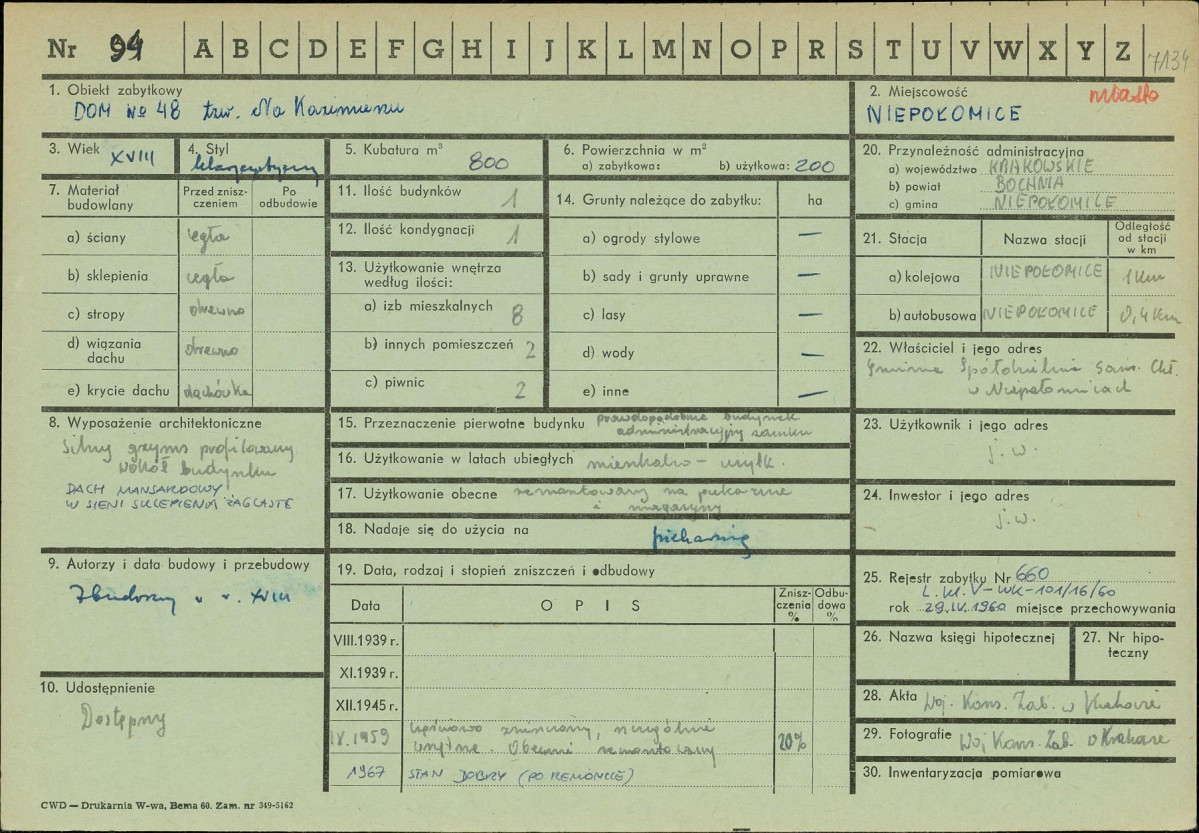 Nr 94 A B C D E F G H I J K L M N O P R S T U V W X Y Z 7134
1. Obiekt zabytkowy
DOM № 48 tzw. Na Kazimierzu
2. Miejscowość miasto
NIEPOŁOMICE
3. Wiek XVIII
4. Styl
klasycystyczny
5. Kubatura m³ 800
6. Powierzchnia w m²
a) zabytkowa: b) użytkowa: 200
7. Materiał budowlany
Przed zniszczeniem
Po odbudowie
a) ściany cegła
b) sklepienia cegła
c) stropy drewno
d) wiązania dachu drewno
e) krycie dachu dachówka
8. Wyposażenie architektoniczne
Silny gzyms profilowany
wokół budynku
DACH MANSARDOWY
W SIENI SKLEPIENIA ŻAGLASTE
9. Autorzy i data budowy i przebudowy
Zbudowany w w. XVIII
10. Udostępnienie
Dostępny
11. Ilość budynków 1
12. Ilość kondygnacji 1
13. Użytkowanie wnętrza
według ilości:
a) izb mieszkalnych 8
b) innych pomieszczeń 2
c) piwnic 2
14. Grunty należące do zabytku: ha
a) ogrody stylowe —
b) sady i grunty uprawne —
c) lasy —
d) wody —
e) inne —
15. Przeznaczenie pierwotne budynku prawdopodobnie budynek
administracyjny zamku
16. Użytkowanie w latach ubiegłych mieszkalno – użytk.
17. Użytkowanie obecne remontowany na piekarnię
i magazyny
18. Nadaje się do użycia na piekarnię
19. Data, rodzaj i stopień zniszczeń i odbudowy
Data OPIS Zniszczenia % Odbudowa %
VIII.1939 r.
XI.1939 r.
XII.1945 r.
IX.1959 częściowo zniszczony, szczególnie
wnętrze. Obecnie remontowany 20%
1967 STAN DOBRY (PO REMONCIE)
20. Przynależność administracyjna
a) województwo KRAKOWSKIE
b) powiat BOCHNIA
c) gmina NIEPOŁOMICE
21. Stacja Nazwa stacji Odległość od stacji w km
a) kolejowa NIEPOŁOMICE 1 km
b) autobusowa NIEPOŁOMICE 0,4 km
22. Właściciel i jego adres
Gminna Spółdzielnia Sam. Chł.
w Niepołomicach
23. Użytkownik i jego adres
j. w.
24. Inwestor i jego adres
j. w.
25. Rejestr zabytku Nr 660
L. Kl. V-WK-101/16/60
rok 29.IV.1960 miejsce przechowywania
26. Nazwa księgi hipotecznej
27. Nr hipoteczny
28. Akta Woj. Kons. Zab. w Krakowie
29. Fotografie Woj Kons. Zab. w Krakowie
30. Inwentaryzacja pomiarowa
CWD — Drukarnia W-wa, Bema 60. Zam. nr 349-5162